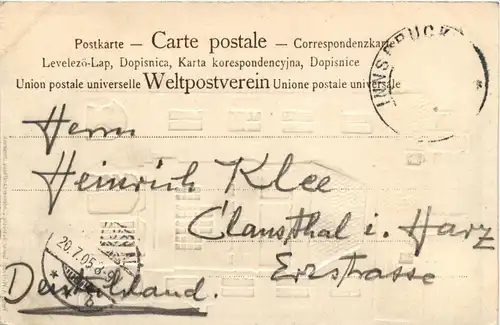 Postkarte – Carte postale – Correspondenzkarte
Levelező-Lap, Dopisnica, Karta korespondencyjna, Dopisnice
Union postale universelle Weltpostverein Unione postale universale
INNSBRUCK
Herrn
Heinrich Klee
Clausthal i. Harz
Erzstrasse
20.7.05
Deutschland.